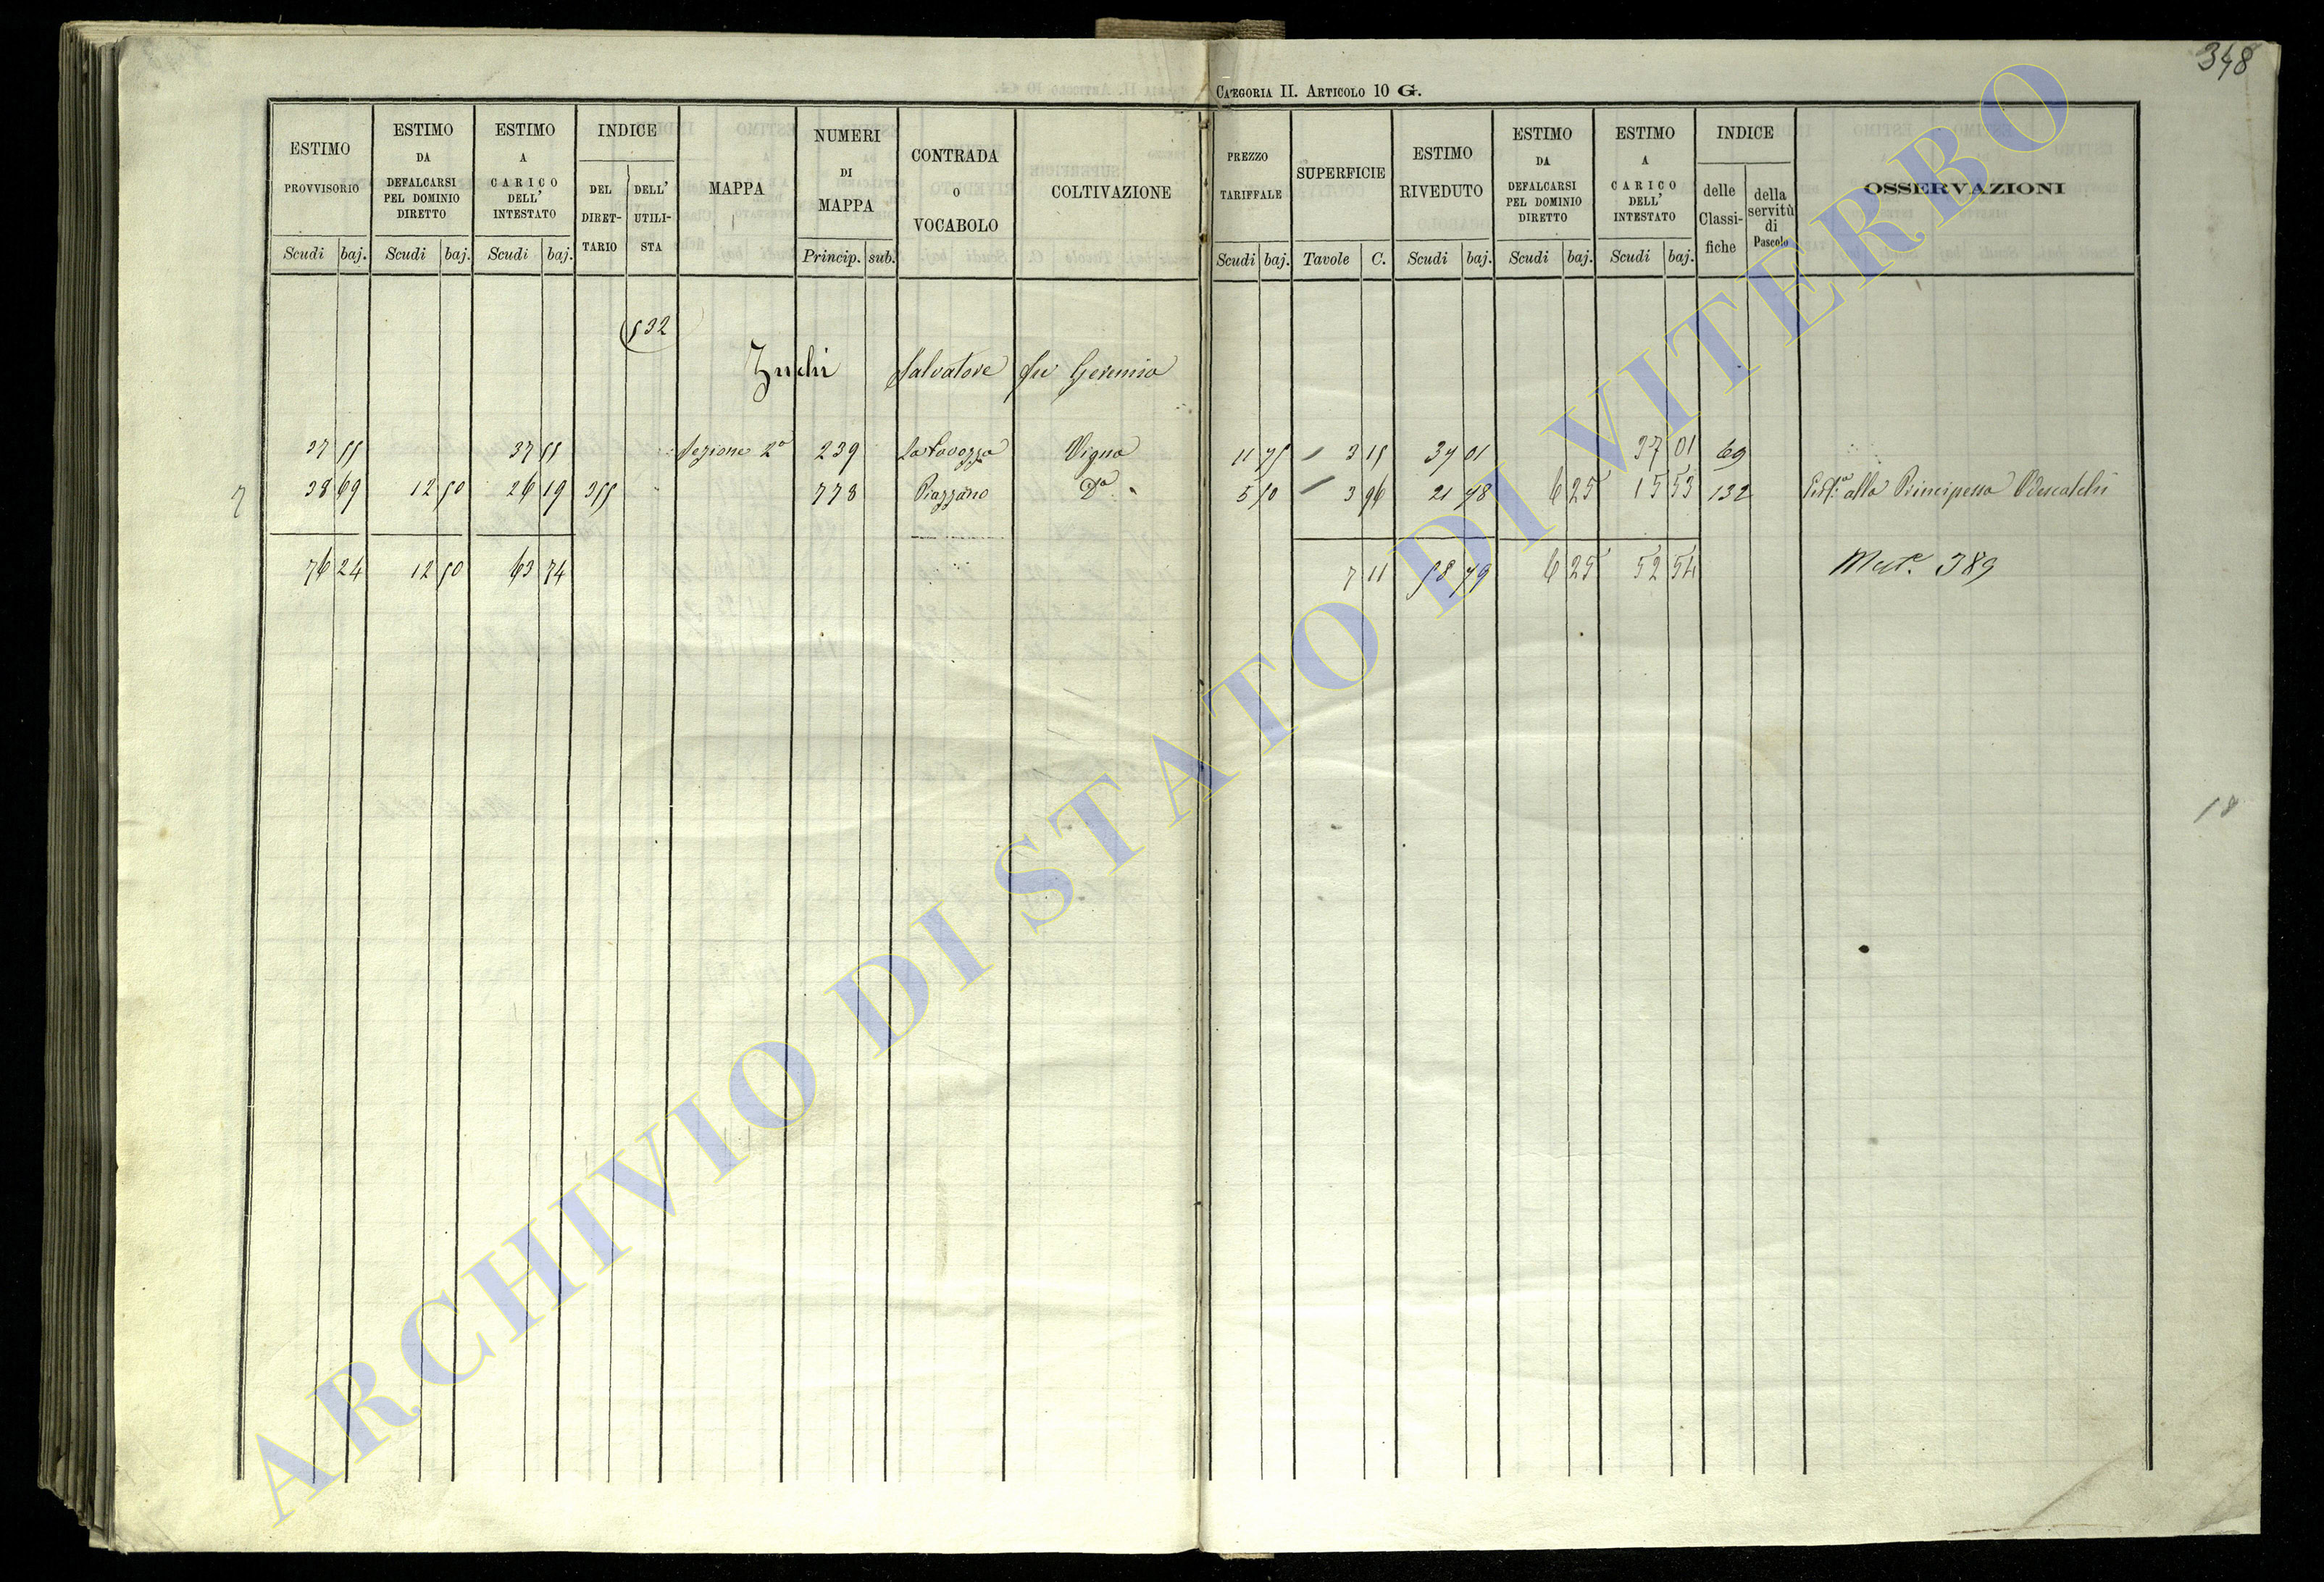 348
CATEGORIA II. ARTICOLO 10 G.
ESTIMO PROVVISORIO Scudi baj.
ESTIMO DA DEFALCARSI PEL DOMINIO DIRETTO Scudi baj.
ESTIMO A CARICO DELL' INTESTATO Scudi baj.
INDICE DEL DIRETTARIO DELL' UTILISTA
MAPPA
NUMERI DI MAPPA Princip. sub.
CONTRADA O VOCABOLO
COLTIVAZIONE
PREZZO TARIFFALE Scudi baj.
SUPERFICIE Tavole C.
ESTIMO RIVEDUTO Scudi baj.
ESTIMO DA DEFALCARSI PEL DOMINIO DIRETTO Scudi baj.
ESTIMO A CARICO DELL' INTESTATO Scudi baj.
INDICE delle Classifiche della servitù di Pascolo
OSSERVAZIONI
532
Zuchi Salvatore fu Geremia
37 55 37 55 Sezione 2a 239 Vigna 11 75 3 15 37 01 37 01 69
7 38 69 12 50 26 19 355 778 Piazzano Da 5 50 3 96 21 78 6 25 15 53 132 alla Principessa Odescalchi
76 24 12 50 63 74 7 11 58 79 6 25 52 54 Mat. 389
18
ARCHIVIO DI STATO DI VITERBO